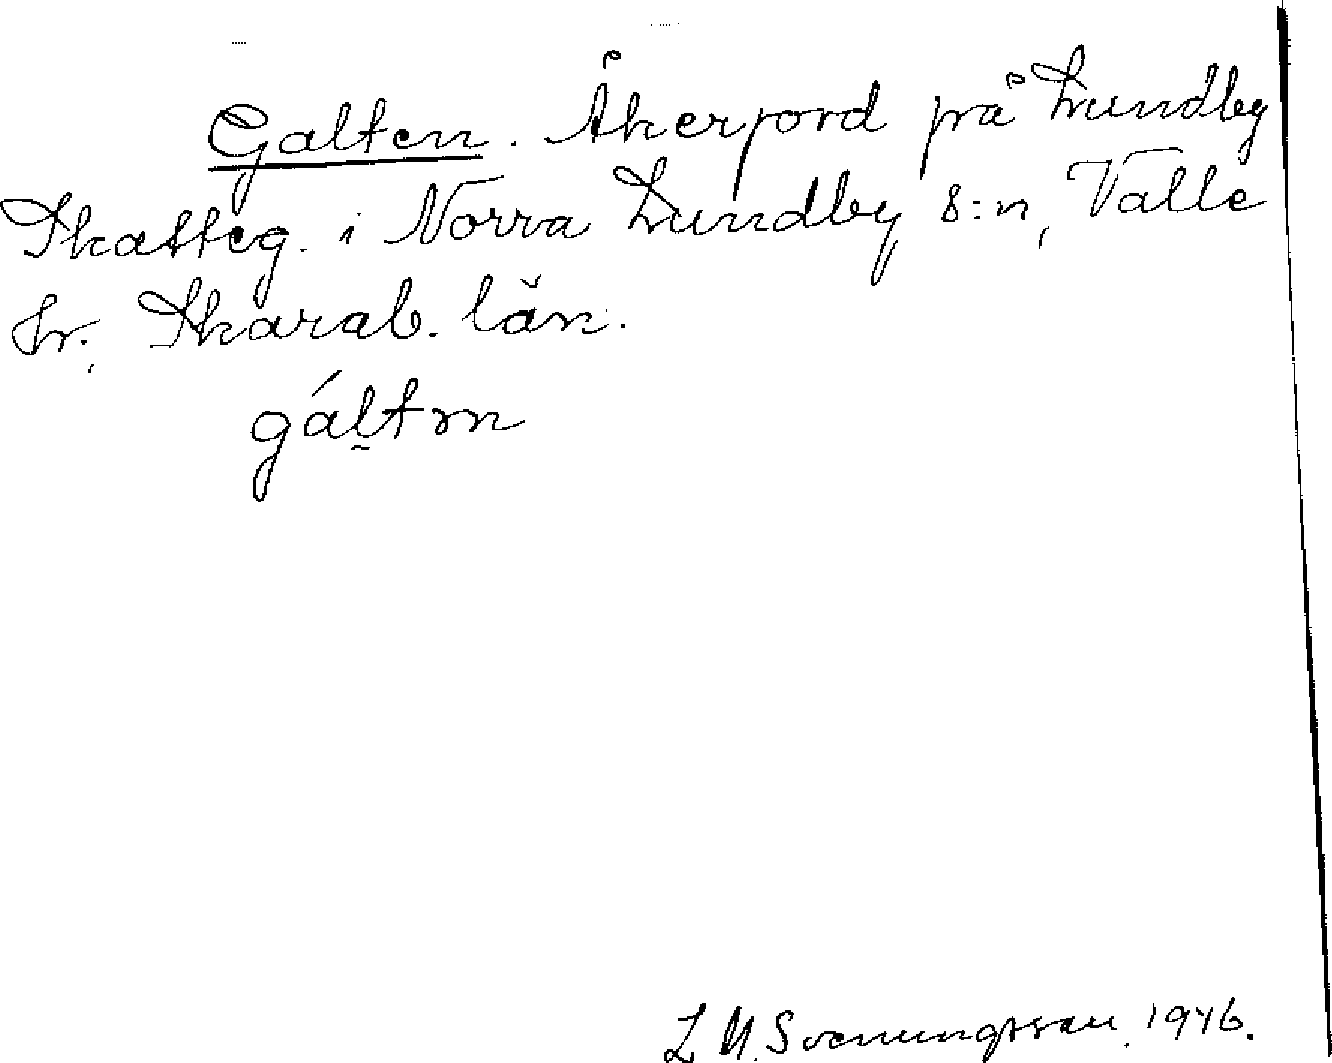 Galten. Åkerjord på Lundby
Skatteg. i Norra Lundby s:n, Valle
hr., Skarab. län.
gáltn
L M. Svenungsson. 1946.